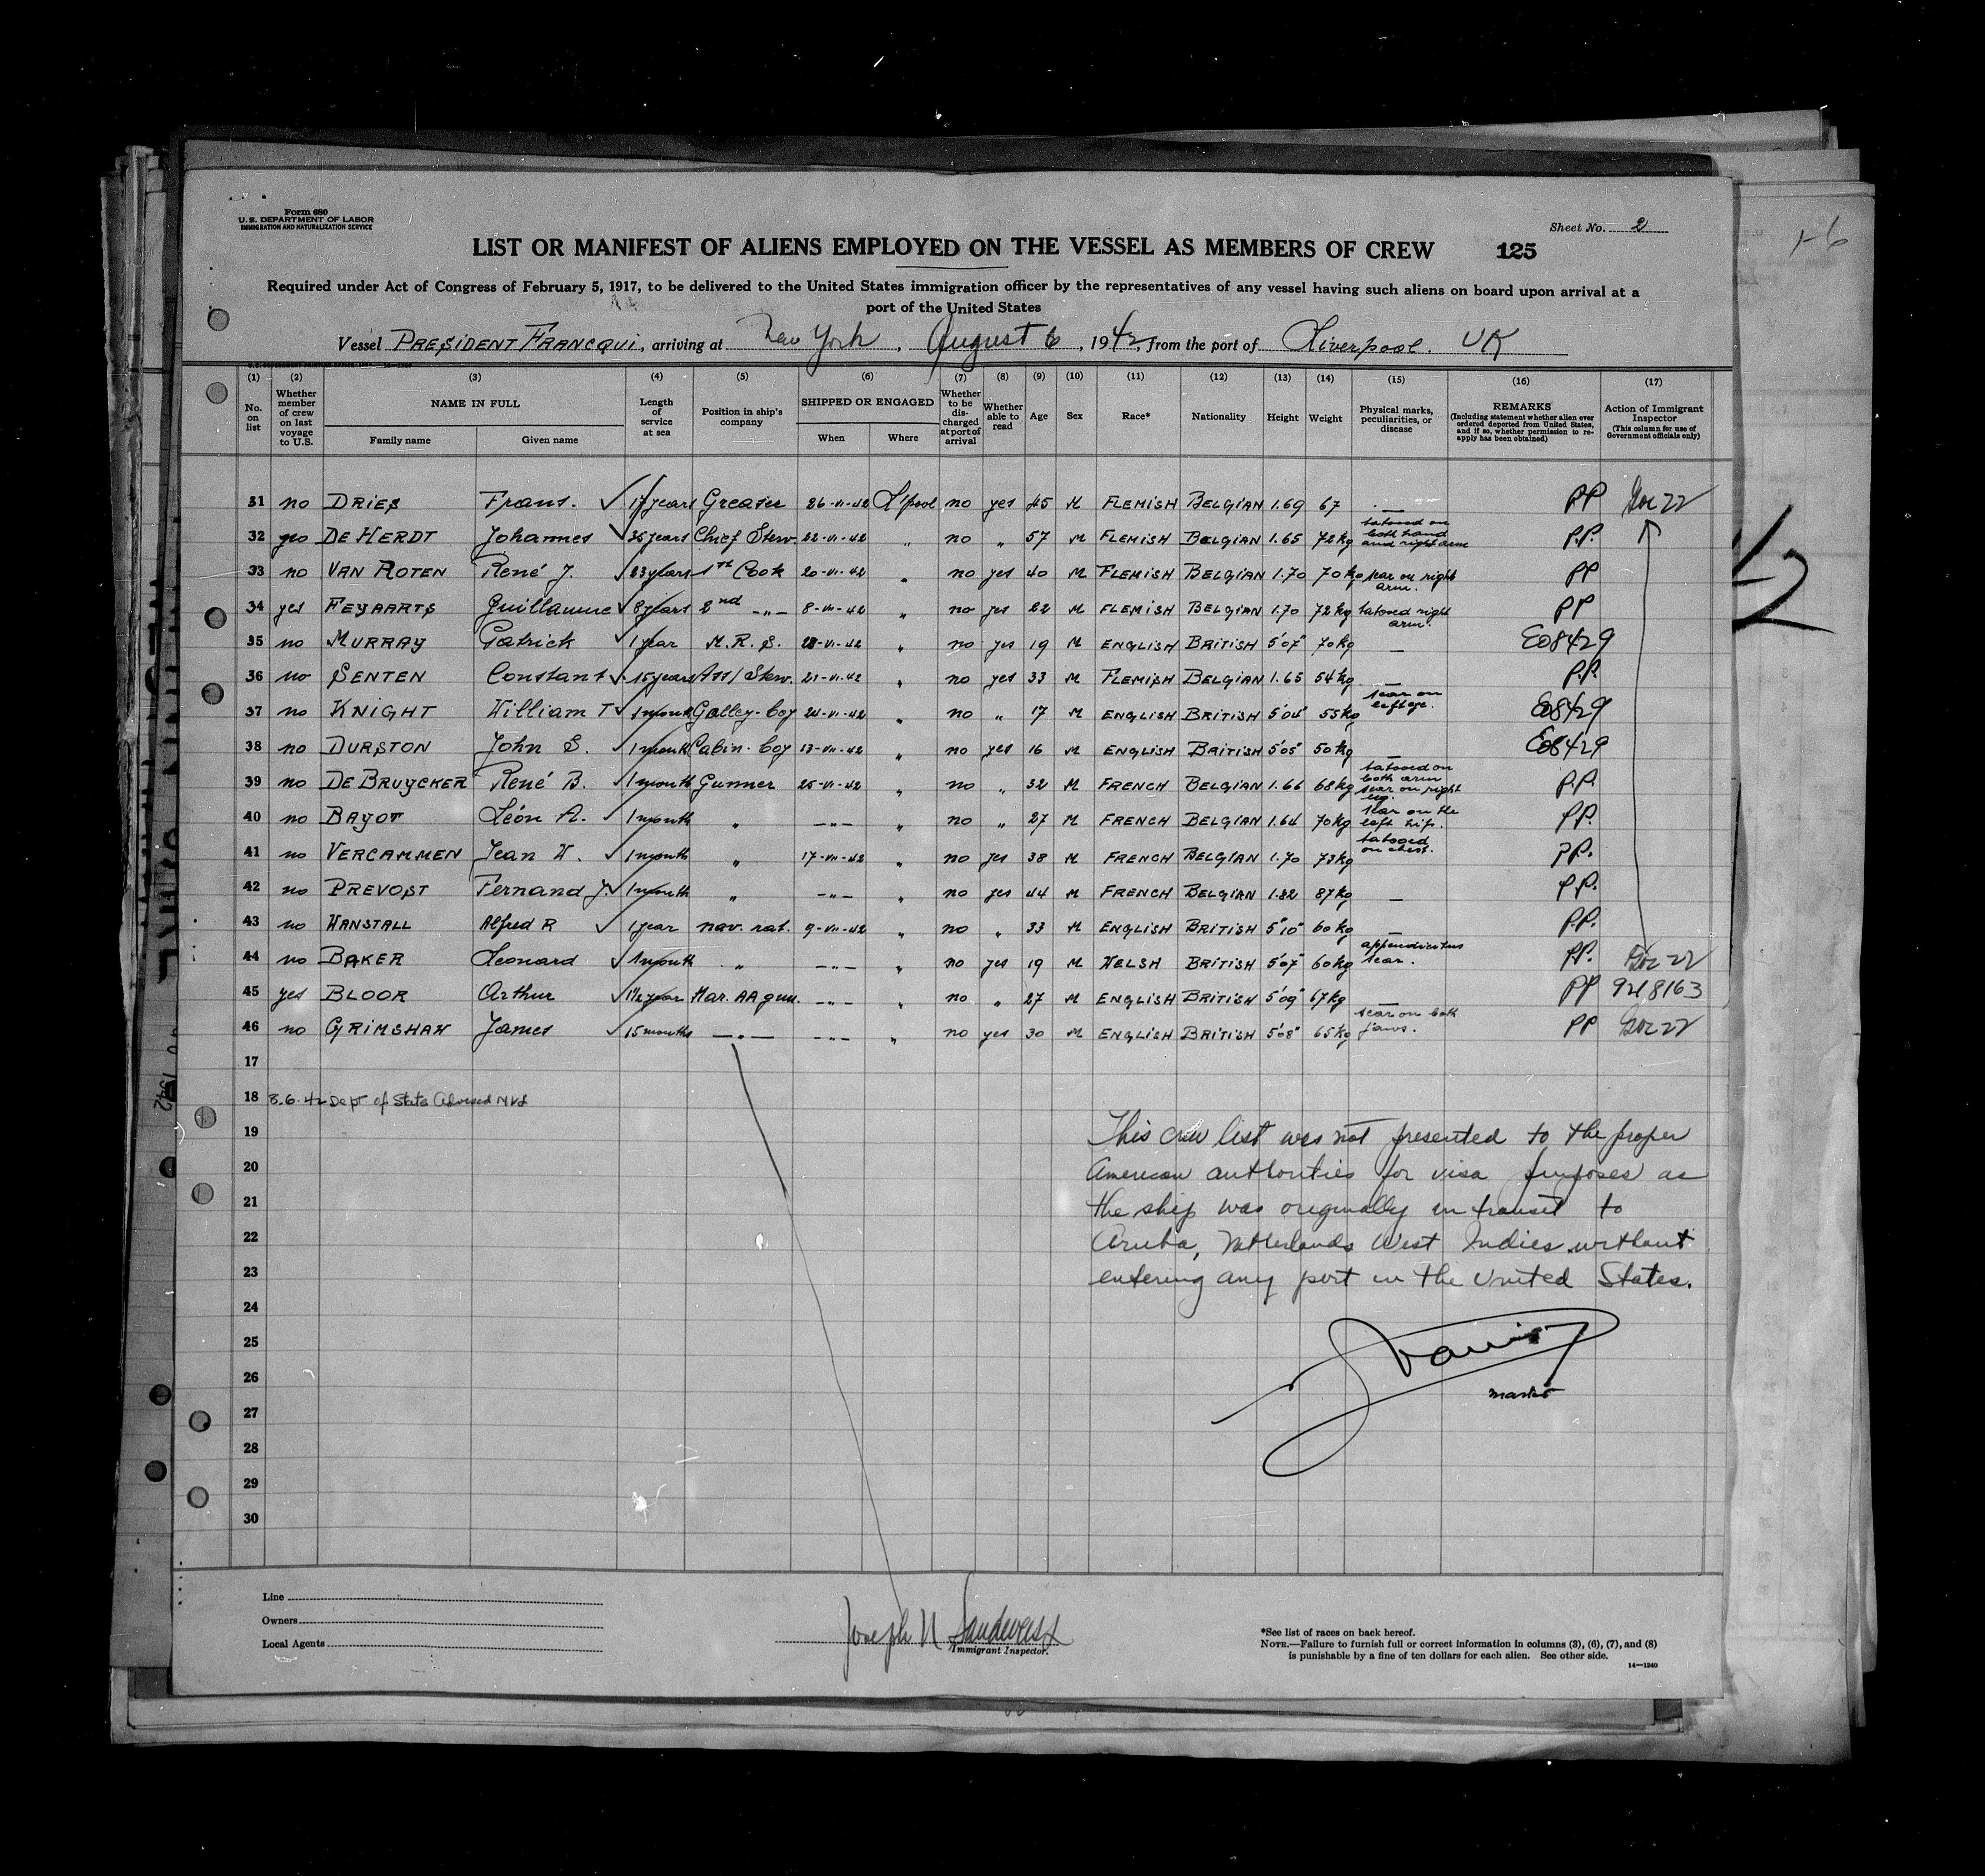 Form 680
U.S. DEPARTMENT OF LABOR
IMMIGRATION AND NATURALIZATION SERVICE
Sheet No. 2
LIST OR MANIFEST OF ALIENS EMPLOYED ON THE VESSEL AS MEMBERS OF CREW 125
1-6
Required under Act of Congress of February 5, 1917, to be delivered to the United States immigration officer by the representatives of any vessel having such aliens on board upon arrival at a
port of the United States
Vessel PRESIDENT FRANCQUI, arriving at New York, August 6, 1942, from the port of Liverpool. UK
(1) (2) (3) (4) (5) (6) (7) (8) (9) (10) (11) (12) (13) (14) (15) (16) (17)
No. on list Whether member of crew on last voyage to U.S. NAME IN FULL Family name Given name Length of service at sea Position in ship's company SHIPPED OR ENGAGED When Where Whether to be discharged at port of arrival Whether able to read Age Sex Race* Nationality Height Weight Physical marks, peculiarities, or disease REMARKS (Including statement whether alien ever ordered deported from United States, and if so, whether permission to reapply has been obtained) Action of Immigrant Inspector (This column for use of Government officials only)
31 no DRIES Frans. 17 years Greaser 26-VI-42 L'pool no yes 45 M FLEMISH BELGIAN 1.69 67 — PP
32 DE HERDT Johannes 36 years Chief Stew. 22-VI-42 " no " 57 M FLEMISH BELGIAN 1.65 72 kg tatooed on both hand and right arm P.P.
33 no VAN ROTEN René J. 23 years 1st Cook 20-VI-42 " no yes 40 M FLEMISH BELGIAN 1.70 70 kg scar on right arm. PP
34 yes FEYAARTS Guillaume 8 years 2nd -"- 8-VII-42 " no yes 22 M FLEMISH BELGIAN 1.70 72 kg tatooed right arm. PP
35 no MURRAY Patrick 1 year M.R.S. -VI-42 " no yes 19 M ENGLISH BRITISH 5'07" 70 kg — E08429
36 no SENTEN Constant 15 years Ass/Stew. 21-VI-42 " no yes 33 M FLEMISH BELGIAN 1.65 54 kg — P.P.
37 no KNIGHT William T 1 month Galley-boy 24-VI-42 " no " 17 M ENGLISH BRITISH 5'04" 55 kg scar on left eye. E08429
38 no DURSTON John S. 1 month Cabin-boy 13-VII-42 " no yes 16 M ENGLISH BRITISH 5'05" 50 kg — E08429
39 no DE BRUYCKER René B. 1 month Gunner 25-VI-42 " no " 32 M FRENCH BELGIAN 1.66 68 kg tatooed on both arm scar on right leg. P.P.
40 no BAYOT Léon A. 1 month " -"- " no " 27 M FRENCH BELGIAN 1.64 70 kg scar on the left hip. P.P.
41 no VERCAMMEN Jean W. 1 month " 17-VII-42 " no yes 38 M FRENCH BELGIAN 1.70 73 kg tatooed on chest. P.P.
42 no PREVOST Fernand J. 1 month " -"- " no yes 44 M FRENCH BELGIAN 1.82 87 kg — P.P.
43 no WANSTALL Alfred R 1 year nav. rat. 9-VII-42 " no " 33 M ENGLISH BRITISH 5'10" 60 kg — P.P.
44 no BAKER Leonard 1 month " -"- " no yes 19 M WELSH BRITISH 5'07" 60 kg scar. P.P.
45 yes BLOOR Arthur 1½ year Mar. AA gun. -"- " no " 27 M ENGLISH BRITISH 5'09" 67 kg — PP 9218163
46 no GRIMSHAW James 15 months -"- -"- " no yes 30 M ENGLISH BRITISH 5'08" 65 kg scar on both jaws. PP
17
18 8.6.42 Dept of State Advised
19 This crew list was not presented to the proper
20 American authorities for visa purposes as
21 the ship was originally in transit to
22 Aruba, Netherlands West Indies without
23 entering any port in the United States.
24
25
26
master
27
28
29
30
Line
Owners
Local Agents
Joseph N Sandweiss
Immigrant Inspector.
*See list of races on back hereof.
NOTE.—Failure to furnish full or correct information in columns (3), (6), (7), and (8)
is punishable by a fine of ten dollars for each alien. See other side.
14—1240